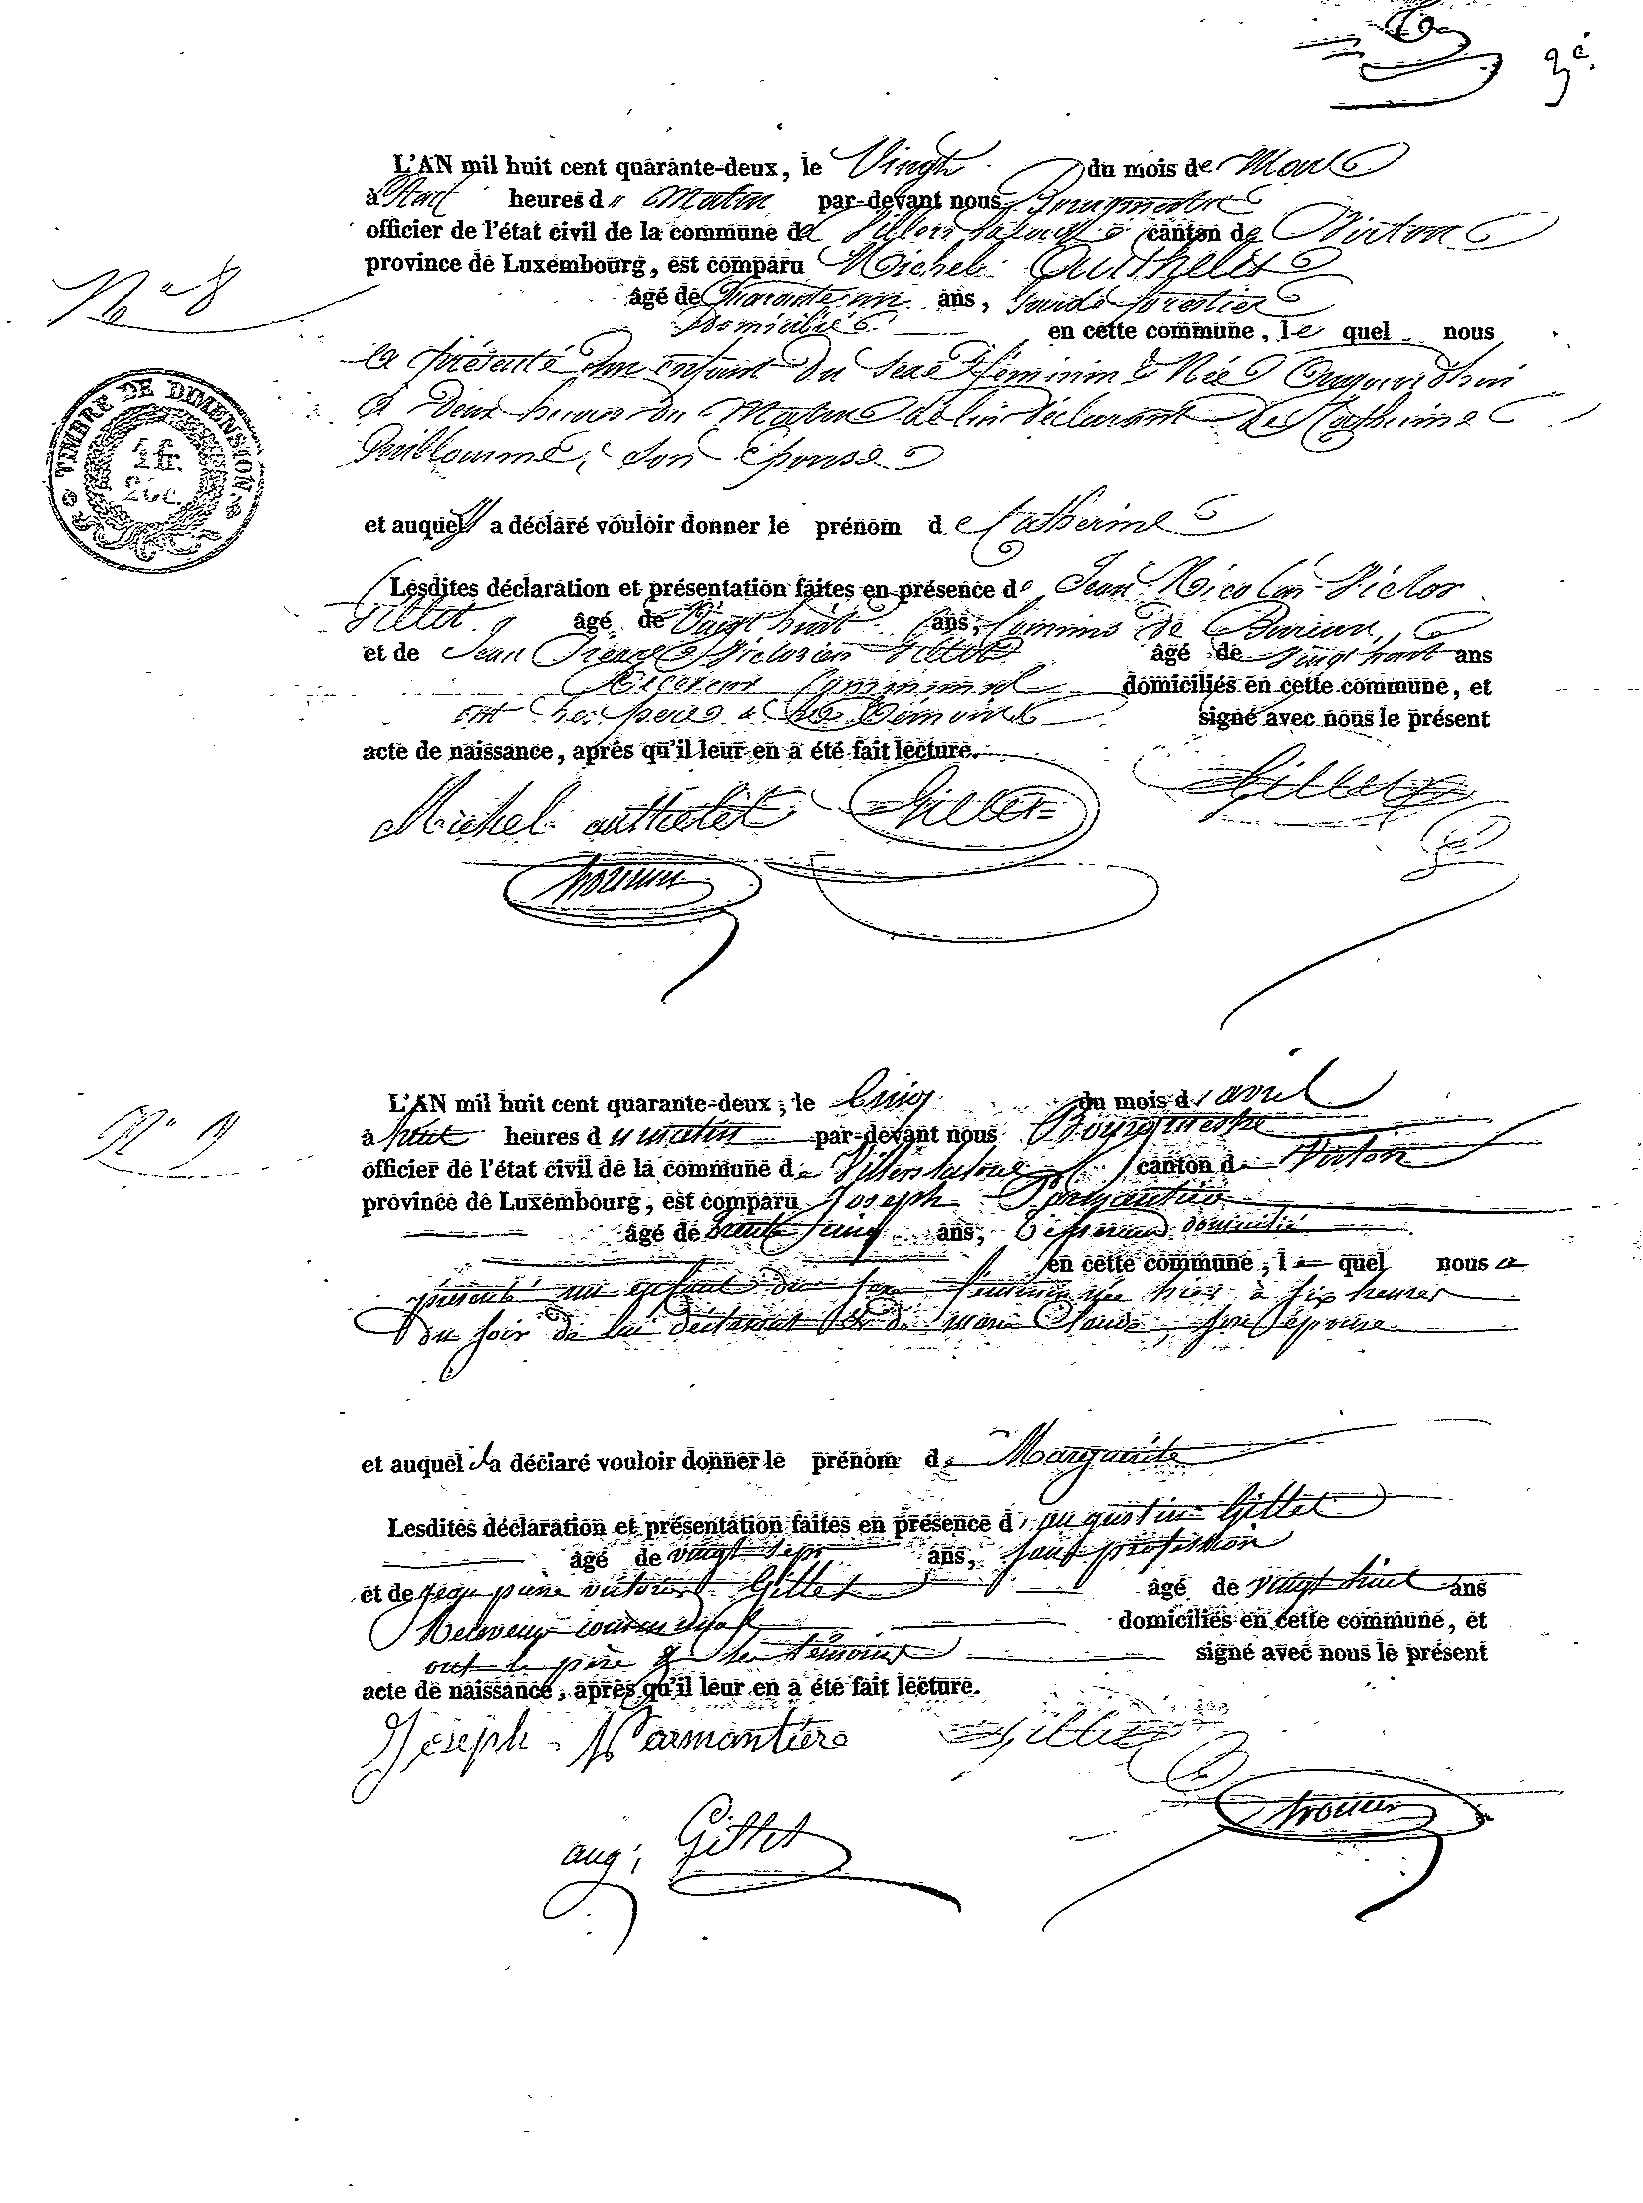 3e.
L'AN mil huit cent quarante-deux, le Vingt du mois de Mars
à neuf heures du Matin par-devant nous Bourgmestre
officier de l'état civil de la commune de Villers latour canton de Virton
province de Luxembourg, est comparu Michel Authelet
N° 8
âgé de Quarante un ans, Garde forestier
Domicilié en cette commune, le quel nous
a présenté un enfant du sexe féminin Née aujourd'hui
à Deux heures du Matin de lui déclarant et de Catherine
Guillaume, son épouse
TIMBRE DE DIMENSION.
1 fr.
20 c.
et auquel il a déclaré vouloir donner le prénom de Catherine
Lesdites déclaration et présentation faites en présence de Jean Nicolas Victor
Gillet âgé de Vingt huit ans, Commis de Bureau,
et de Jean Pierre Victorien Gillet âgé de vingt huit ans
Receveur Communal domiciliés en cette commune, et
ont les père & les témoins signé avec nous le présent
acte de naissance, après qu'il leur en a été fait lecture.
Michel authelet Gillet Gillet
N° 9
L'AN mil huit cent quarante-deux, le Cinq du mois d'avril
à huit heures du matin par-devant nous Bourgmestre
officier de l'état civil de la commune de Villers latour canton de Virton
province de Luxembourg, est comparu Joseph Parmantier
âgé de trente cinq ans, domicilié
en cette commune, le quel nous a
présenté un enfant du sexe féminin née hier à six heures
du soir de lui déclarant et de marie Claude, son épouse
et auquel il a déclaré vouloir donner le prénom de Marguerite
Lesdites déclaration et présentation faites en présence d'augustin Gillet
âgé de vingt sept ans, sans profession
et de jean pierre victorien Gillet âgé de vingt huit ans
Receveur communal domiciliés en cette commune, et
ont le père & les témoins signé avec nous le présent
acte de naissance, après qu'il leur en a été fait lecture.
Joseph Parmantiere Gillet
aug; Gillet